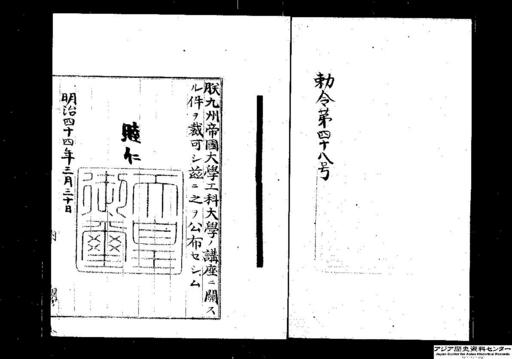 勅令第四十八号
朕九州帝國大學工科大學ノ講座ニ關ス
ル件ヲ裁可シ茲ニ之ヲ公布セシム
睦仁
天皇御璽
明治四十四年三月三十日
アジア歴史資料センター
Japan Center for Asian Historical Records